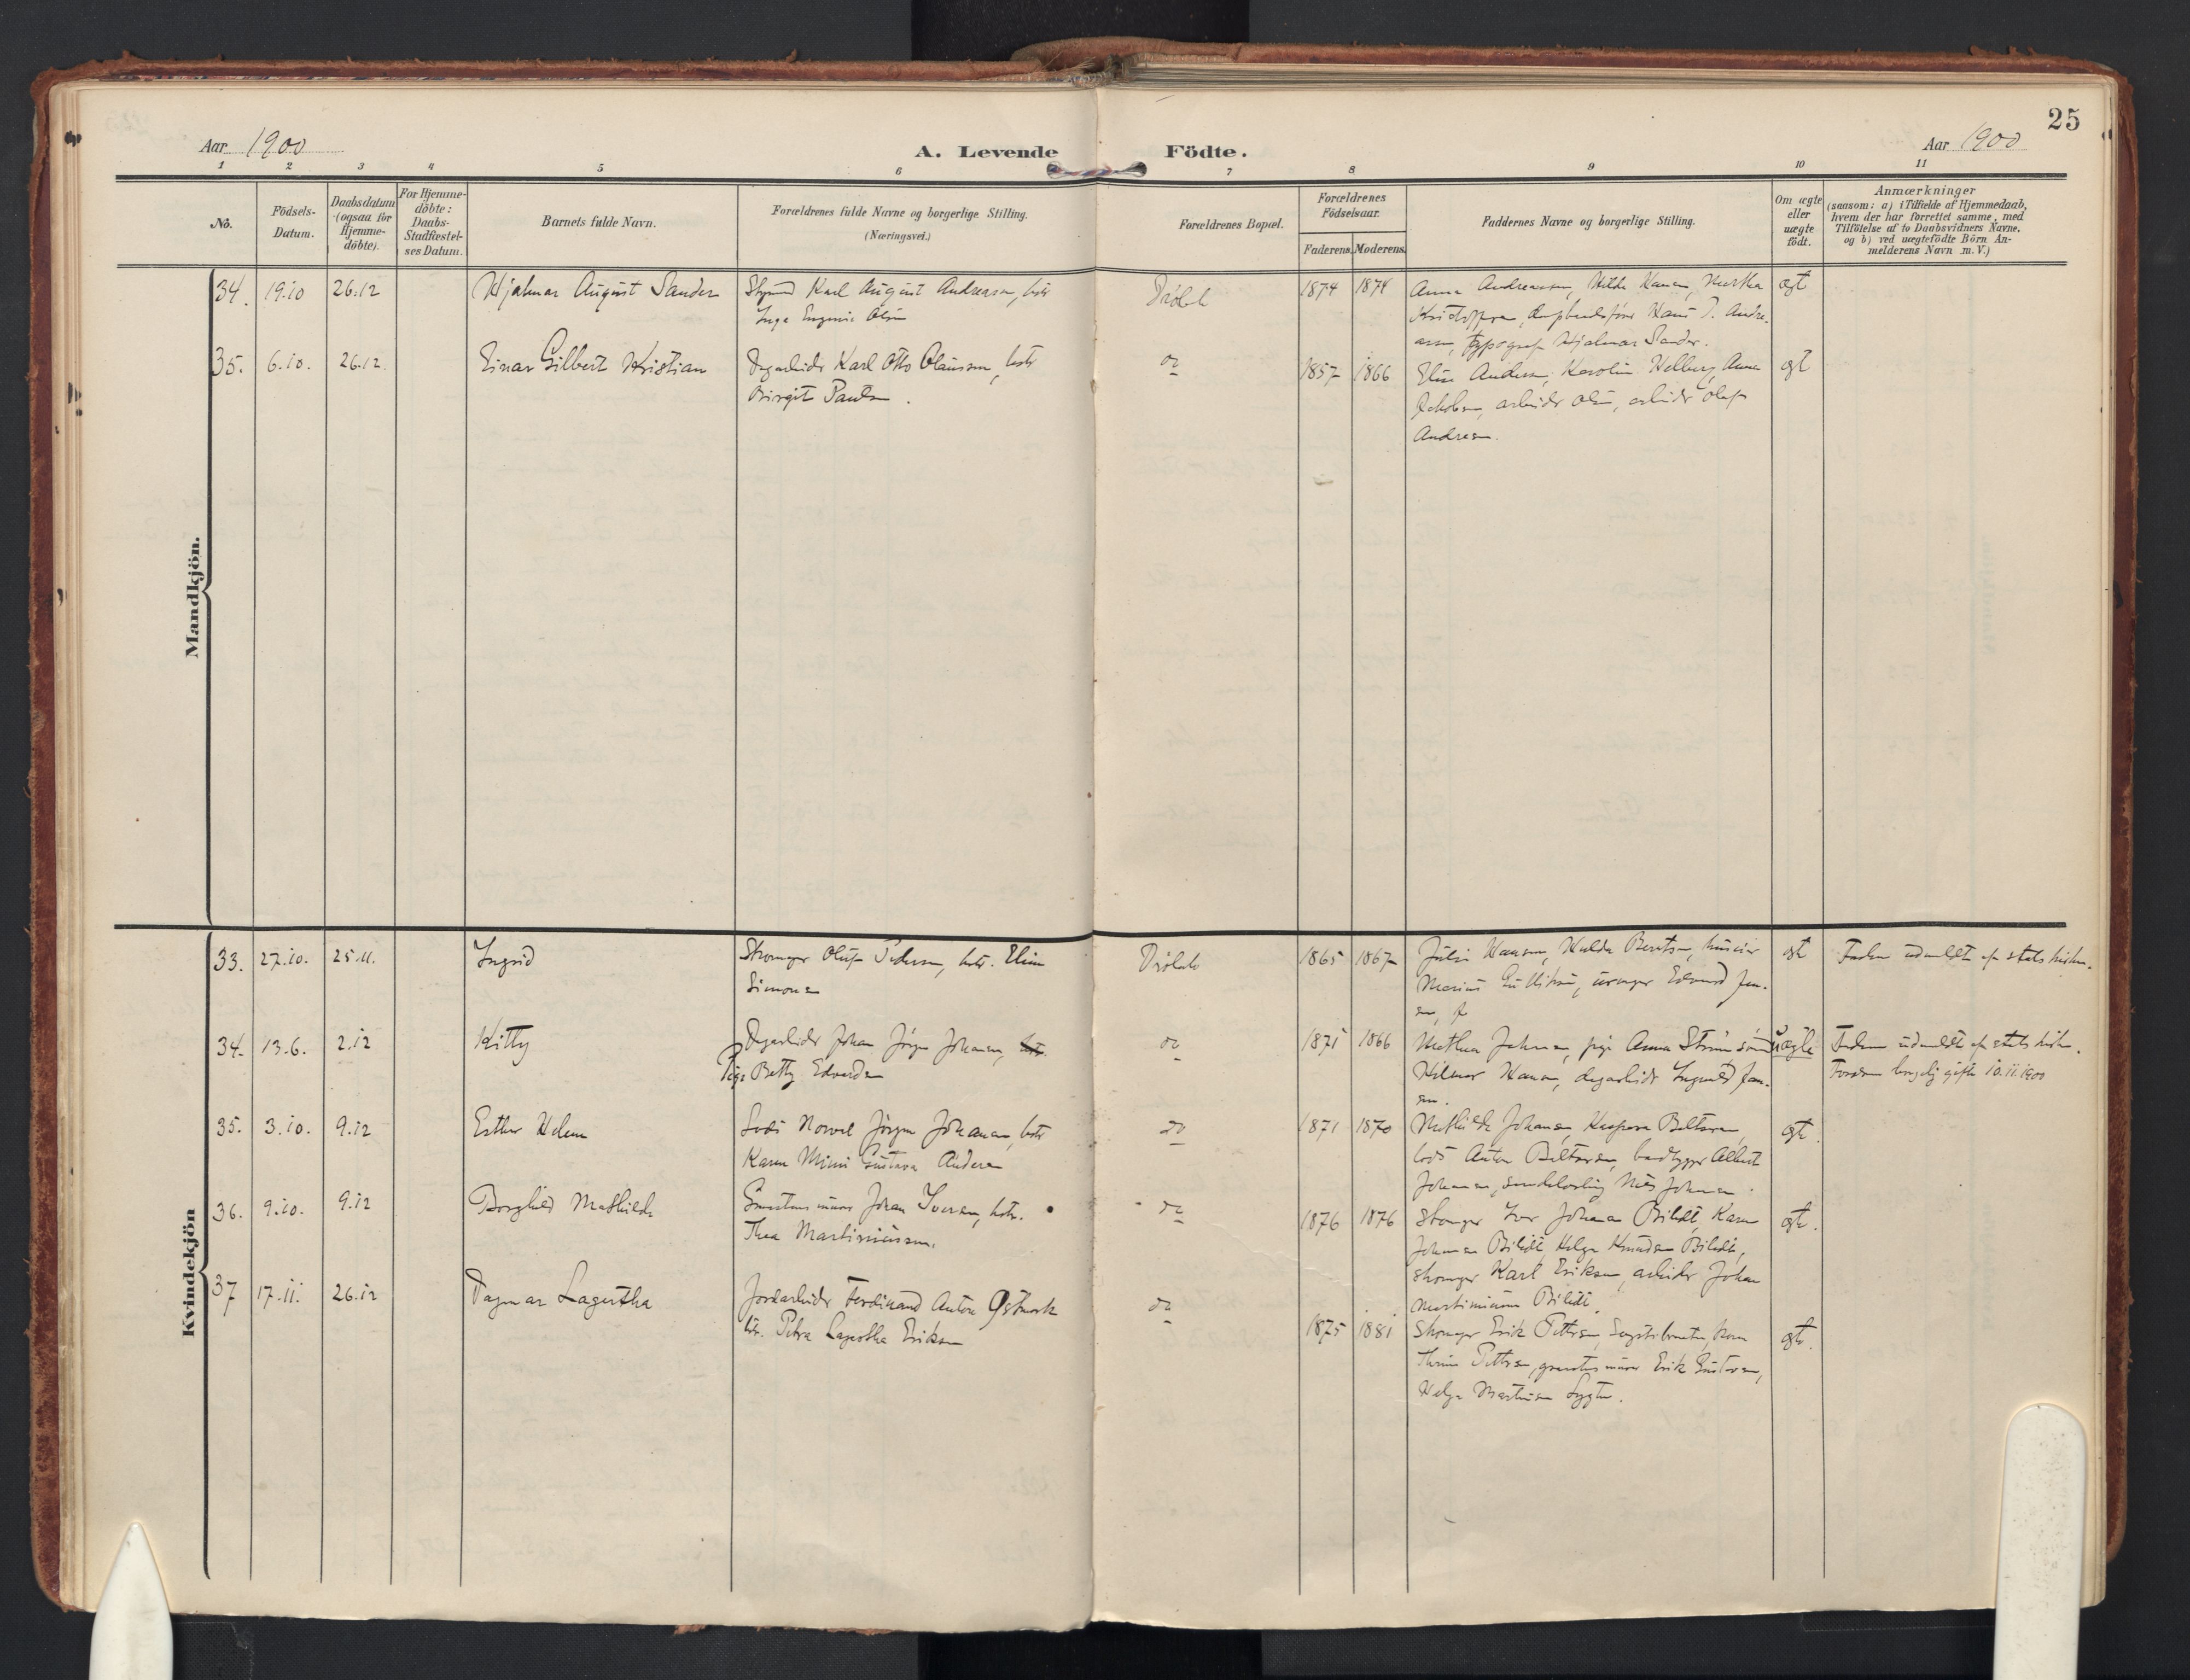 25
Aar 1900
A. Levende Födte.
Aar 1900
1 2 3 4 5 6 7 8 9 10 11
No.
Födsels-Datum.
Daabsdatum (ogsaa for Hjemme-döbte).
For Hjemme-döbte: Daabs-Stadfæstel-ses Datum.
Barnets fulde Navn.
Forældrenes fulde Navne og borgerlige Stilling.
(Næringsvei.)
Forældrenes Bopæl.
Forældrenes Födselsaar.
Faderens. Moderens.
Faddernes Navne og borgerlige Stilling.
Om ægte eller uægte födt.
Anmærkninger
(saasom: a) i Tilfælde af Hjemmedaab,
hvem der har forrettet samme, med
Tilföielse af to Daabsvidners Navne,
og b) ved uægtefödte Börn An-
melderens Navn m. V.)
Mandkjön.
34. 19.10 26.12 Hjalmar August Sander
Karl August Andreasen, hstr
Inga Eugenie Olsen
Dröbak 1874 1874
Anna Andreassen, Hilda Hansen, Martha
Kristoffersen, Hans J. Andre-
asen, typograf Hjalmar Sander.
ægt
35. 6.10. 26.12. Einar Gilbert Kristian
Dagarbeider Karl Otto Olaussen, hstr
Birgit Paulsen.
do 1857 1866
Elise Andersen, Karoline Kolberg, Anna
Jakobsen, arbeider Olsen, arbeider Olaf
Andresen.
ægt
Kvindekjön
33. 27.10. 25.11. Ingrid
Olaf Pedersen, hstr. Eline
Simonsen
Dröbak 1865 1867
Julie Hansen, Hulda Berntsen,
Marius Gulliksen, Edvard Jen-
sen,
ægt
Faderen udmeldt af statskirken.
34. 13.6. 2.12 Kitty
Dagarbeider Johan Jörgen Johansen, hstr.
Pige Betty Edvardsen
do 1871 1866
Mathea Johnsen, pige Anna Ström,
Hilmar Hansen, dagarbeider Ingvald Jan-
sen.
uægte
Faderen udmeldt af statskirken.
Foræld. borgelig gifte 10.11.1900
35. 3.10. 9.12 Esther Helene
Lods Norvel Jörgen Johansen, hstr
Karen Mimi Gustava Andersen
do 1871 1870
Mathilde Johansen, Kaspara Beltersen,
lods Anton Beltersen, Albert
Johansen, Nils Johnsen.
ægte.
36. 9.10. 9.12 Borghild Mathilde
Johan Iversen, hstr.
Thea Martiniussen.
do 1876 1876
Iver Johansen Biledt, Karen
Johansen Biledt, Helga Knudsen Biledt,
Karl Eriksen, arbeider Johan
Martiniussen Biledt.
ægte.
37 17.11. 26.12 Dagmar Lagertha
Jordarbeider Ferdinand Anton Østmork
hstr. Petra Lagertha Eriksen
do 1875 1881
Erik Pettersen,
Pettersen, Erik Gustavsen,
Helga Martinsen.
ægte.